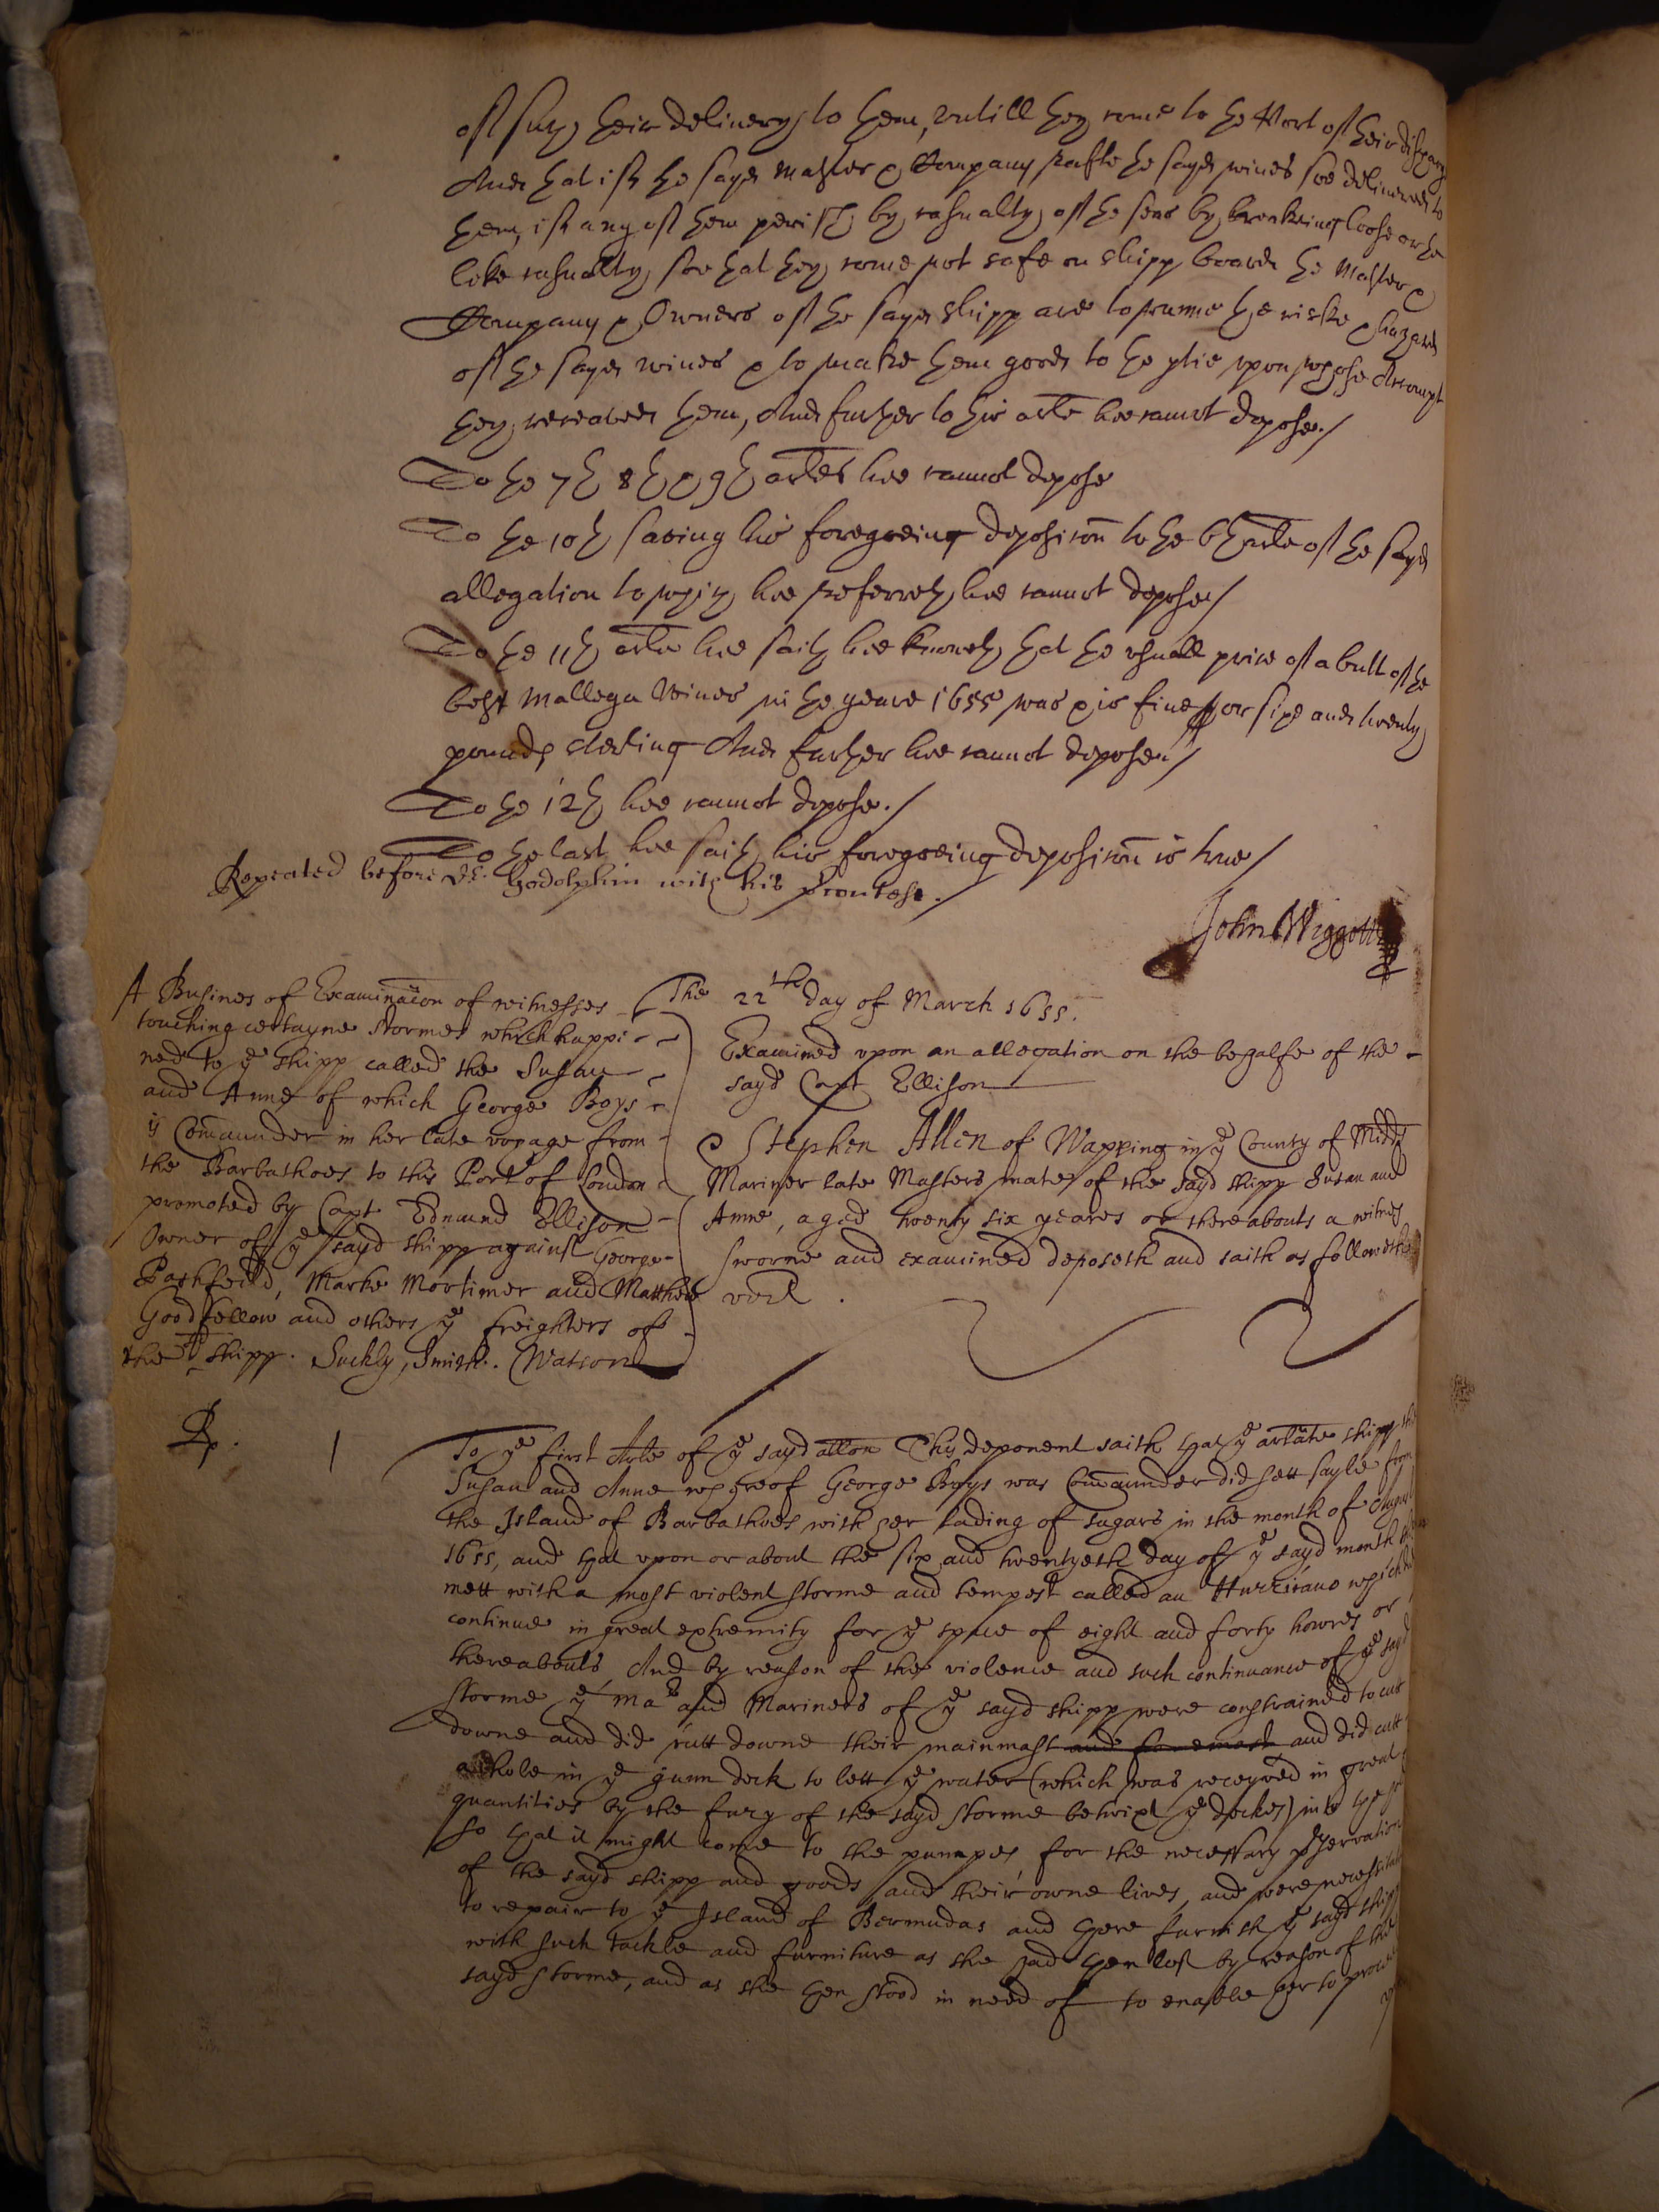 of such their delivery to them, untill they come to the Port of their discharge
And that if the sayd Master & Company after the sayd wines soe delivered to
them, if any of them perish by casualty of the seas by breaking loose or the
like casualty, soe that they come not safe on shipp board the Master &
Company & Owners of the sayd shipp are to runne the riske & hazard
of the sayd wines & to make them good to the ptie upon whose Accompt
they receaved them, And further to this arle hee cannot depose./
To the 7th 8th & 9th arles hee cannot depose
To the 10th saving his foregoeing deposicon to the 6th arle of the sayd
allegation to which hee referreth hee cannot depose/
To the 11th arle hee saith hee knoweth that the usuall price of a butt of the
best Mallega Wines in the yeare 1655 was & is five or sixe and twenty
pounds sterling And further hee cannot depose./
To the 12th hee cannot depose./
To the last hee saith his foregoeing deposicon is true/
Repeated before Dr. Godolphin with his prontest./
John Wiggott
A Busines of Examinacon of witnesses
touching certayne stormes which happi-
ned to ye shipp called the Susan
and Anne of which George Boys
is Comaunder in her late voyage from
the Barbathoes to this Port of London
promoted by Capt Edmund Ellison
Owner of ye sayd shipp against George
Pashfeild, Marke Mortimer and Matthew
Goodfellow and others ye freighters of
the sd shipp. Suckly, Smith. Watson
The 22th day of March 1655.
Examined upon an allegation on the behalfe of the
sayd Capt Ellison
Stephen Allen of Wapping in ye County of Middx
Mariner late Masters mate of the sayd shipp Susan and
Anne, aged twenty six yeares or thereabouts a witnes
sworne and examined deposeth and saith as followeth
vizt.
Rp. 1
To ye first Arle of ye sayd allon This deponent saith that ye arlate shipp the
Susan and Anne whereof George Boys was Comaunder did sett sayle from
the Island of Barbathoes with her lading of sugars in the month of August
1655, and that upon or about the six and twentyeth day of ye sayd month
mett with a most violent storme and tempest called an Hurricano which did
continue in great extremity for ye space of eight and forty howres or
thereabouts And by reason of the violence and such continuance of ye sayd
storme ye mar and Mariners of ye sayd shipp were constrained to cut
downe and did cutt downe their mainmast and foremast and did cutt
a hole in ye gunn deck to lett ye water (which was receyved in great
quantities by the fury of the sayd storme betwixt ye deckes) into
so that it might come to the pumpes for the necessary pservation
of the sayd shipp and goods and their owne lives, and were necessitated
to repair to ye Island of Bermudas and there furnish ye sayd shipp
with such tackle and furniture as she had then lost by reason of the
sayd storme, and as she then stood in need of to enable her to proceed